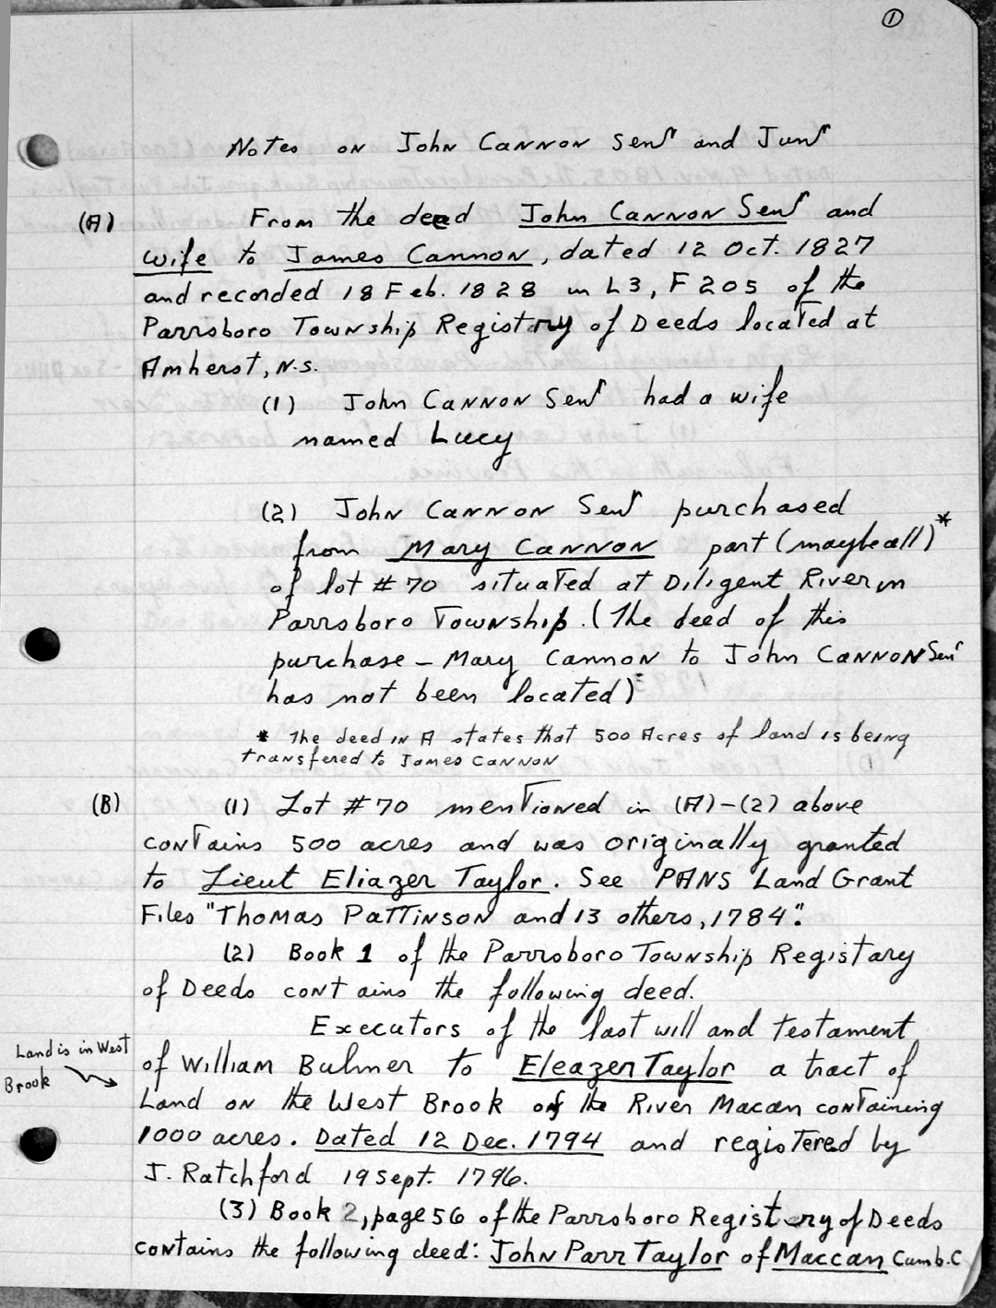 ①
Notes on John Cannon Senr and Junr
(A) From the deed John Cannon Senr and
wife to James Cannon, dated 12 Oct. 1827
and recorded 18 Feb. 1828 in L3, F205 of the
Parrsboro Township Registary of Deeds located at
Amherst, N.S.
(1) John Cannon Senr had a wife
named Lucy
(2) John Cannon Senr purchased
from Mary Cannon part (maybe all)*
of lot #70 situated at Diligent River in
Parrsboro Township. (The deed of this
purchase - Mary Cannon to John Cannon Senr
has not been located)
* The deed in A states that 500 Acres of land is being
transfered to James Cannon
(B) (1) Lot #70 mentioned in (A)-(2) above
contains 500 acres and was originally granted
to Lieut Eliazer Taylor. See PANS Land Grant
Files "Thomas Pattinson and 13 others, 1784".
(2) Book 1 of the Parrsboro Township Registary
of Deeds contains the following deed.
Executors of the last will and testament
Land is in West
Brook
of William Bulmer to Eleazer Taylor a tract of
Land on the West Brook of the River Macan containing
1000 acres. Dated 12 Dec. 1794 and registered by
J. Ratchford 19 Sept. 1796.
(3) Book 2, page 56 of the Parrsboro Registary of Deeds
contains the following deed: John Parr Taylor of Maccan Cumb. C